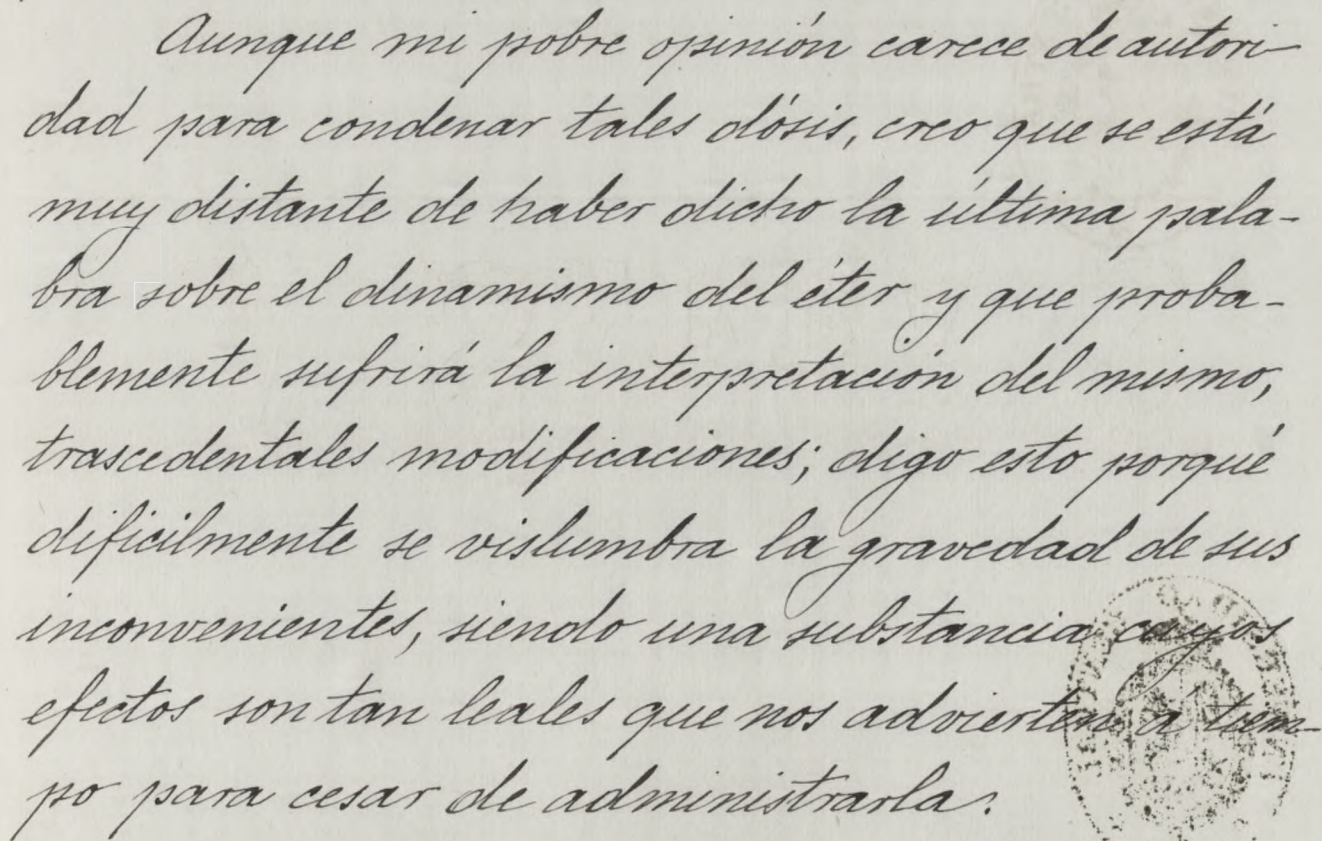 Aunque mi pobre opinión carece de autori-
dad para condenar tales dósis, creo que se está
muy distante de haber dicho la última pala-
bra sobre el dinamismo del éter y que proba-
blemente sufrirá la interpretación del mismo,
trascedentales modificaciones; digo esto porqué
dificilmente se vislumbra la gravedad de sus
inconvenientes, siendo una substancia cuyos
efectos son tan leales que nos advierten á tiem-
po para cesar de administrarla.